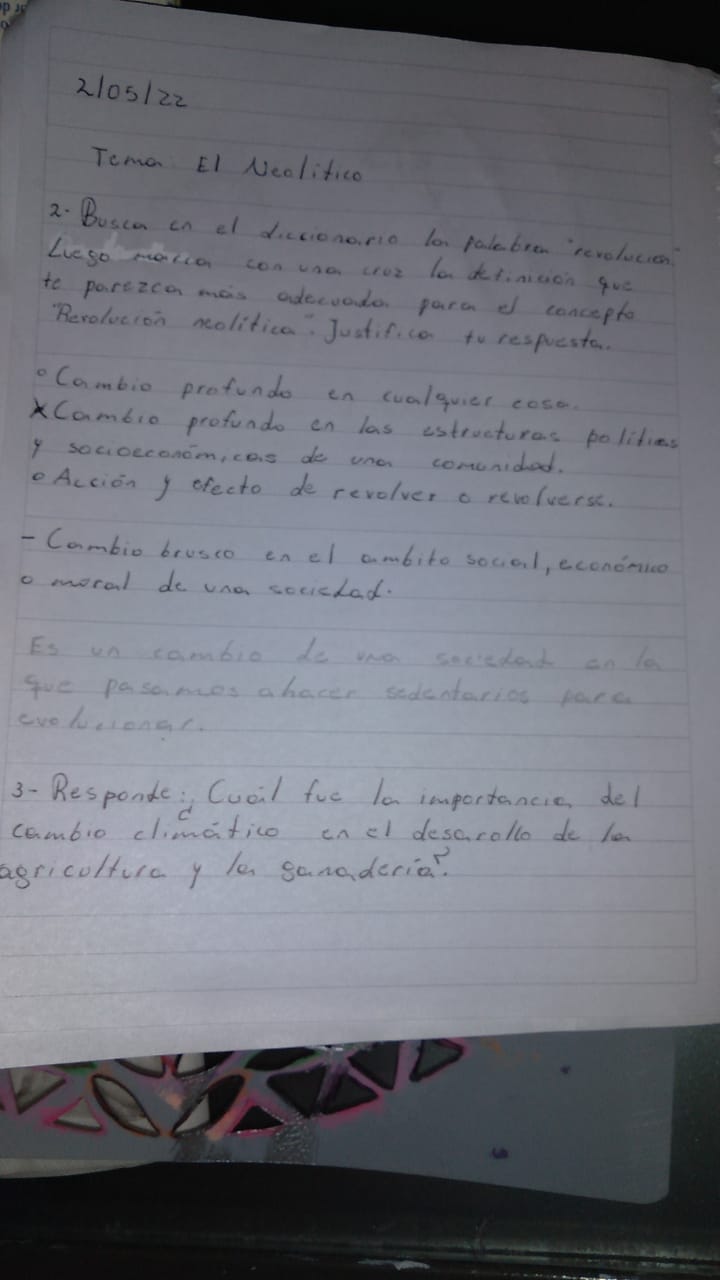 2/05/22
Tema: El Neolitico
2- Busca en el diccionario la palabra "revolución"
Luego marca con una cruz la definición que
te parezca más adecuada para el concepto
"Revolución neolítica". Justifica tu respuesta.
o Cambio profundo en cualquier cosa.
X Cambio profundo en las estructuras politicas
y socioeconómicas de una comunidad.
o Acción y efecto de revolver o revolverse.
- Cambio brusco en el ambito social, económico
o moral de una sociedad.
Es un cambio de una sociedad en la
que pasamos a hacer sedentarios para
evolucionar.
3- Responde: ¿Cuál fue la importancia del
cambio climático en el desarollo de la
agricultura y la ganadería?